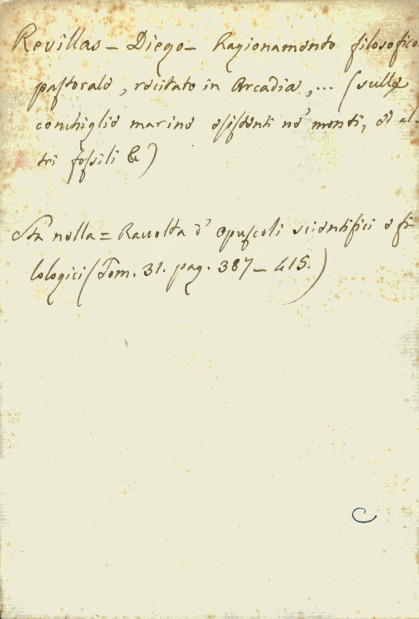 Revillas - Diego - Ragionamento filosofico
pastorale, recitato in Arcadia, ... (sulle
conchiglie marine esistenti ne' monti, ed al-
tri fossili &)
Sta nella = Raccolta d' opuscoli scientifici e fi-
lologici (Tom. 31. pag. 387 - 415.)
C